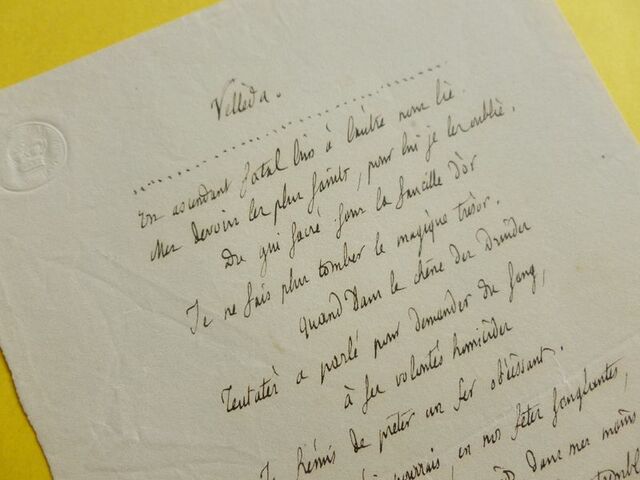 Vellèda.
Un ascendant fatal l'un à l'autre nous lie.
Mes devoirs les plus saints, pour lui je les oublie.
Du gui sacré sous la faucille d'or
Je ne fais plus tomber le magique trésor.
Quand dans le chêne des Druides
Teutatès a parlé pour demander du sang,
à ses volontés homicides
Je frémis de prêter un fer obéissant.
pourrais, en nos fêtes sanglantes,
dans mes mains